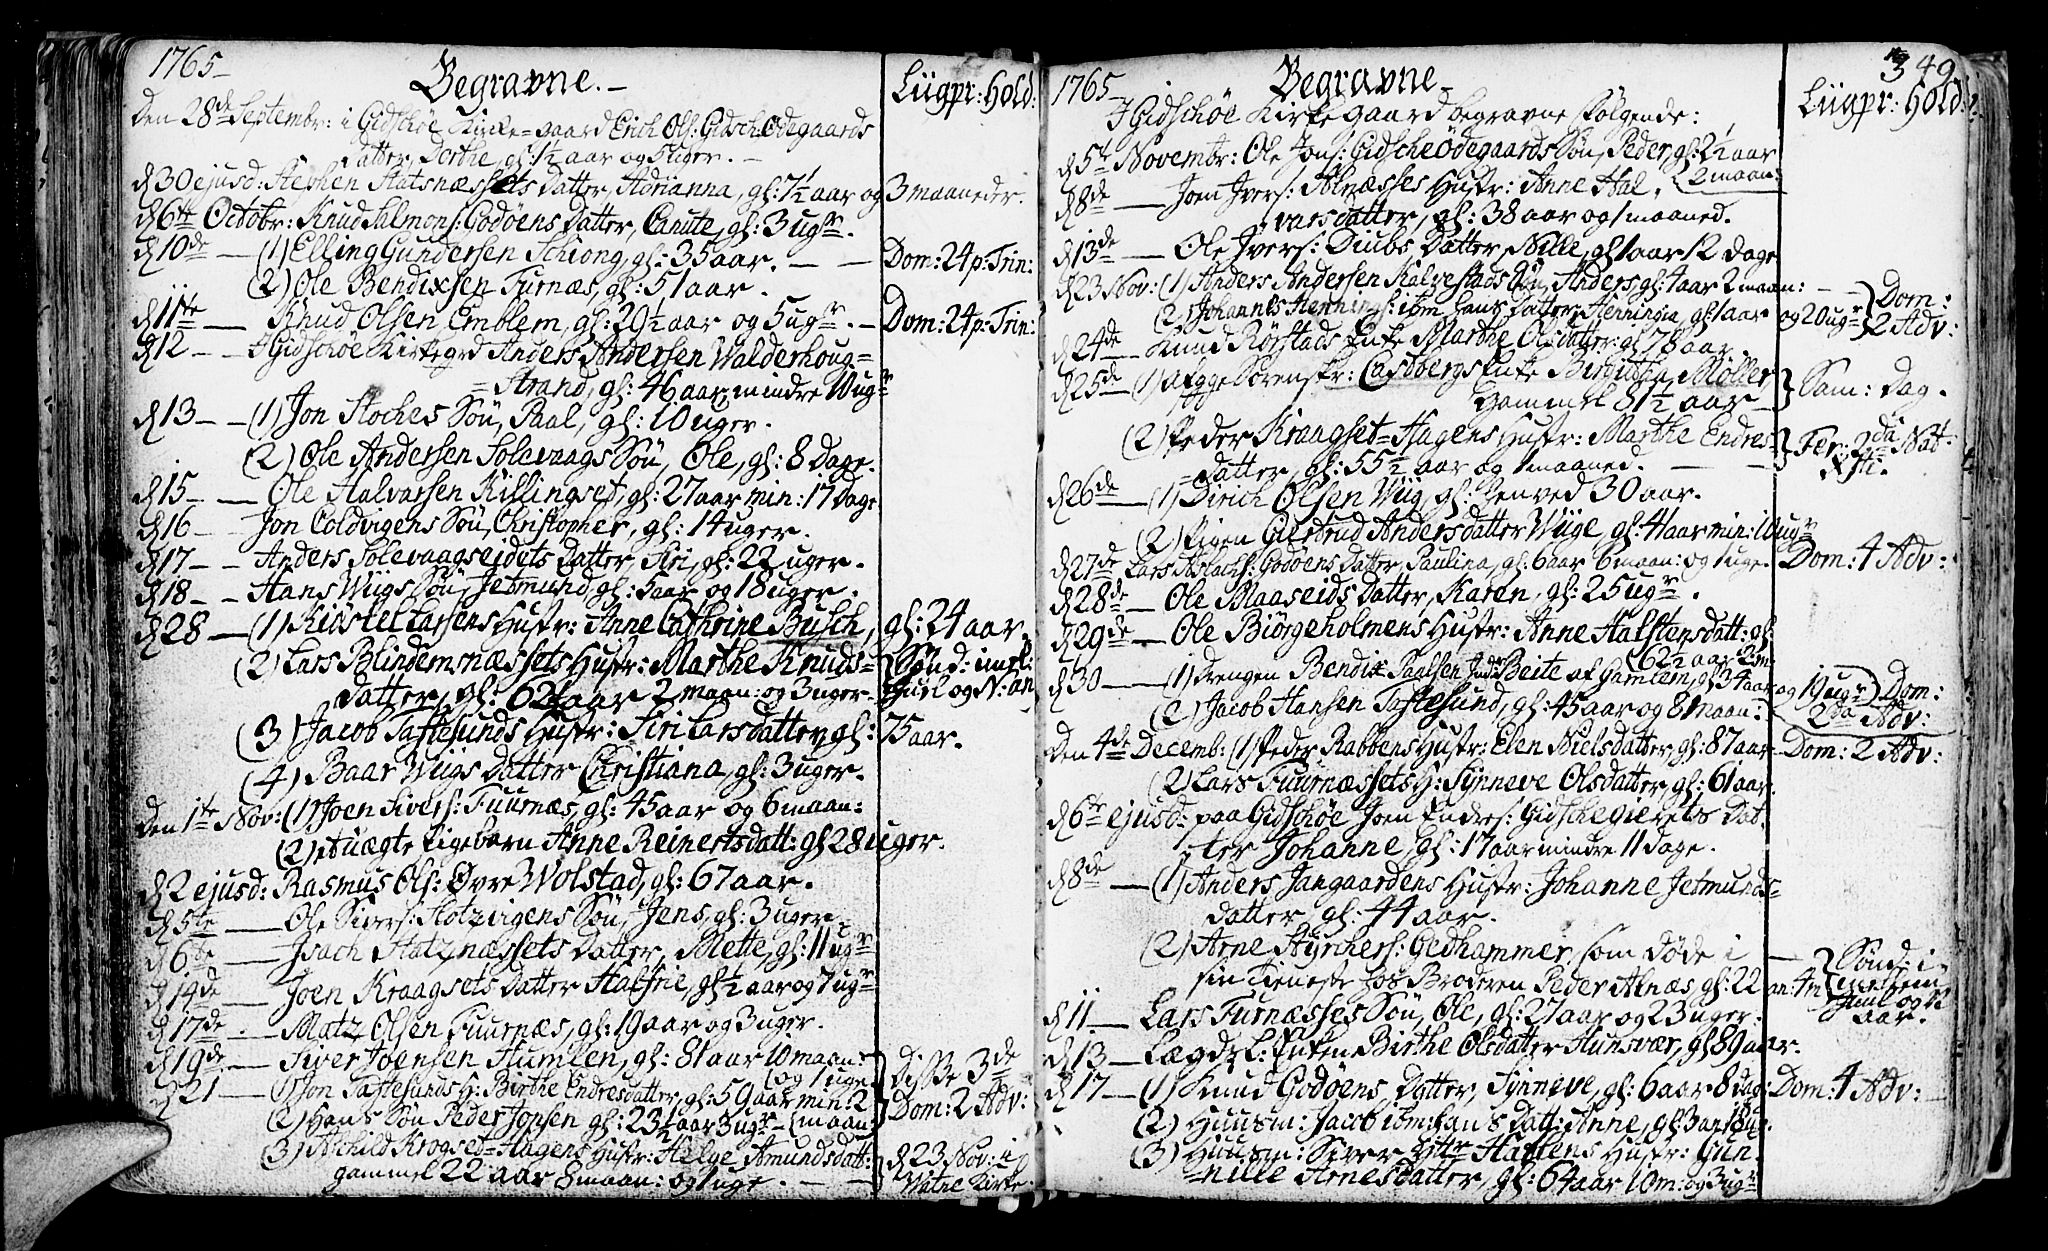 1765
Begravne.
Liigpr: Hold:
Den 28de Septembr: i Gidschöe Kirke-gaard Erich Ols: Gidsch Ödegaards
Datter Dorthe, gl: 1½ aar og 5 uger.
d 30 ejusd: Stephen Statsnæssets Datter, Adrianna, gl: 7½ aar og 3 maaneder.
d 6te Octobr: Knud Salmons: Godöens Datter, Canute, gl: 3 ugr.
d 10de (1) Elling Gundersen Schiong, gl: 35 aar. Dom: 24 p: Trin:
(2) Ole Bendixsen Furnæs, gl: 51 aar.
d 11te Knud Olsen Emblem, gl: 29½ aar og 5 ugr. Dom: 24 p: Trin:
d 12 I Gidschöe Kirkegrd Anders Andersen Walderhoug=
=Strand, gl: 46 aar mindre ugr
d 13 (1) Jon Stoches Sön, Paal, gl: 10 uger.
(2) Ole Andersen Solevaags Sön, Ole, gl: 8 Dage.
d 15 Ole Halvarsen Killingset, gl: 27 aar min: 17 Dage
d 16 Jon Coldvigens Sön, Christopher, gl: 14 uger.
d 17 Anders Solevaagseidets Datter, Siri, gl: 22 uger.
d 18 Hans Wiigs Sön, Jetmund, gl: 5 aar og 18 uger.
d 28 (1) Kidstel Larsens Hustr: Anne Cathrine Busch, gl: 24 aar
(2) Lars Blindemsnæssets Hustr: Marthe Knuds=
datter, gl: 62 aar 2 maan: og 3 uger.
Sönd: imel:
Juul og N: aar
(3) Jacob Taftesunds Hustr: Siri Larsdatter, gl: 75 aar.
(4) Baar Wiigs Datter Christiana, gl: 3 uger.
Den 1te Nov: (1) Joen Sivers: Fuurnæs, gl: 45 aar og 6 maan:
(2) et uægte Pigebarn Anne Reinertsdatt: gl 28 uger.
d 2 ejusd: Rasmus Ols: Øvre Wolstad, gl: 67 aar.
d 5te Ole Sivers: Slotzvigens Sön, Jens, gl: 3 uger.
d 6te Isach Statznæssets Datter, Mette, gl: 11 ugr
d 14de Joen Kraagsets Datter Halfrie, gl ½ aar og 7 ugr
d 17de Matz Olsen Fuurnæs, gl: 19 aar og 3 uger.
d 19de Siver Joensen Humlen, gl: 81 aar 10 maan:
og 1 uge
Disse 3de
d 21 (1) Jon Taftesunds H: Birthe Endresdatter, gl: 59 aar min: 2
maan:
Dom: 2 Adv:
(2) Hans Sön Peder Jonsen gl: 23½ aar 3 ugr
(3) Archild Krogset=Hagens Hustr: Helge Amundsdatt:
gammel 22 aar 8 maan: og 1 uge.
d 23 Nov: i
Watne Kirke.
349
1765
Begravne
Liigpr: Hold:
I Gidschöe Kirkegaard begravne fölgende:
d 5te Novembr: Ole Jons: Gidscheödegaards Sön, Peder, gl: 2½ aar
2 maan:
d 8de Joen Ivers: Alnæsses Hustr: Anne Hal=
varsdatter, gl: 38 aar og 1 maaned.
d 13de Ole Ivers: Diubs Datter, Nille, gl 1 aar 12 dage
d 23 Nov: (1) Anders Andersen Kalvestads Sön, Anders gl: 4 aar 2 maan:
(2) Johannes Hennings: ibm: hans Datter Henningia, gl: 1 aar og 20 ugr
Dom:
2 Adv:
d 24de Knud Rörstads Enke Marthe Olsdatter: gl 78 aar
d 25de (1) Sorenskr: Carsbergs Enke Birgitha Möller
Gammel 81½ aar
Sam: Dag.
(2) Peder Kraagset=Hagens Hustr: Marthe Endres=
=datter, gl: 55½ aar og 1 maaned.
Fer: 2da Nat:
Xsti.
d 26de (1) Dirich Olsen Wiig, gl: henved 30 aar.
(2) Pigen Giertrud Andersdatter Wiige, gl: 41 aar min: 10 ugr
d 27de Lars Aslachs: Godöens Datter, Paulina, gl: 6 aar 6 maan: og 1 uge. Dom: 4 Adv:
d 28de Ole Maaseids Datter, Karen, gl: 25 ugr.
d 29de Ole Biörgeholmens Hustr: Anne Halstensdatt: gl:
62½ aar 2 m
d 30 (1) Drengen Bendix Paalsen Beite af Gamlem, gl 34 aar og 19 ugr
(2) Jacob Hansen Taftesund, gl: 45 aar og 8 maan:
Dom:
2da Adv:
Den 4de Decemb: (1) Peder Rabbens Hustr: Elen Nielsdatter, gl: 87 aar Dom: 2 Adv:
(2) Lars Fuurnæssets H: Synneve Olsdatter, gl: 61 aar.
d 6te ejusd: paa Gidschöe Joen Endres: Gidschegierets Dat=
ter Johanne, gl: 17 aar mindre 11 dage.
d 8de (1) Anders Jangaardens Hustr: Johanne Jetmunds=
datter, gl: 44 aar.
(2) Arne Styrchers: Gedhammer, som döde i
sin tieneste hos Broderen Peder Alnæs gl: 22 aar 4 m
Sönd: i
mellem
Juul og N
aar.
d 11 Lars Furnæsses Sön, Ole, gl: 27 aar og 23 uger.
d 13 Lægdzl: Enken Birthe Olsdatter Hunsvær, gl 89 aar.
d 17 (1) Knud Godöens, Datter, Synneve, gl: 6 aar 8 dag: Dom: 4 Adv:
(2) Huusm: Jacob ibm: hans Datt: Anne, gl: 3 aar 18 ug.
(3) Huusm: Siver Hartens Hustr: Gun=
nille Arnesdatter, gl: 64 aar 10 m: og 3 ugr